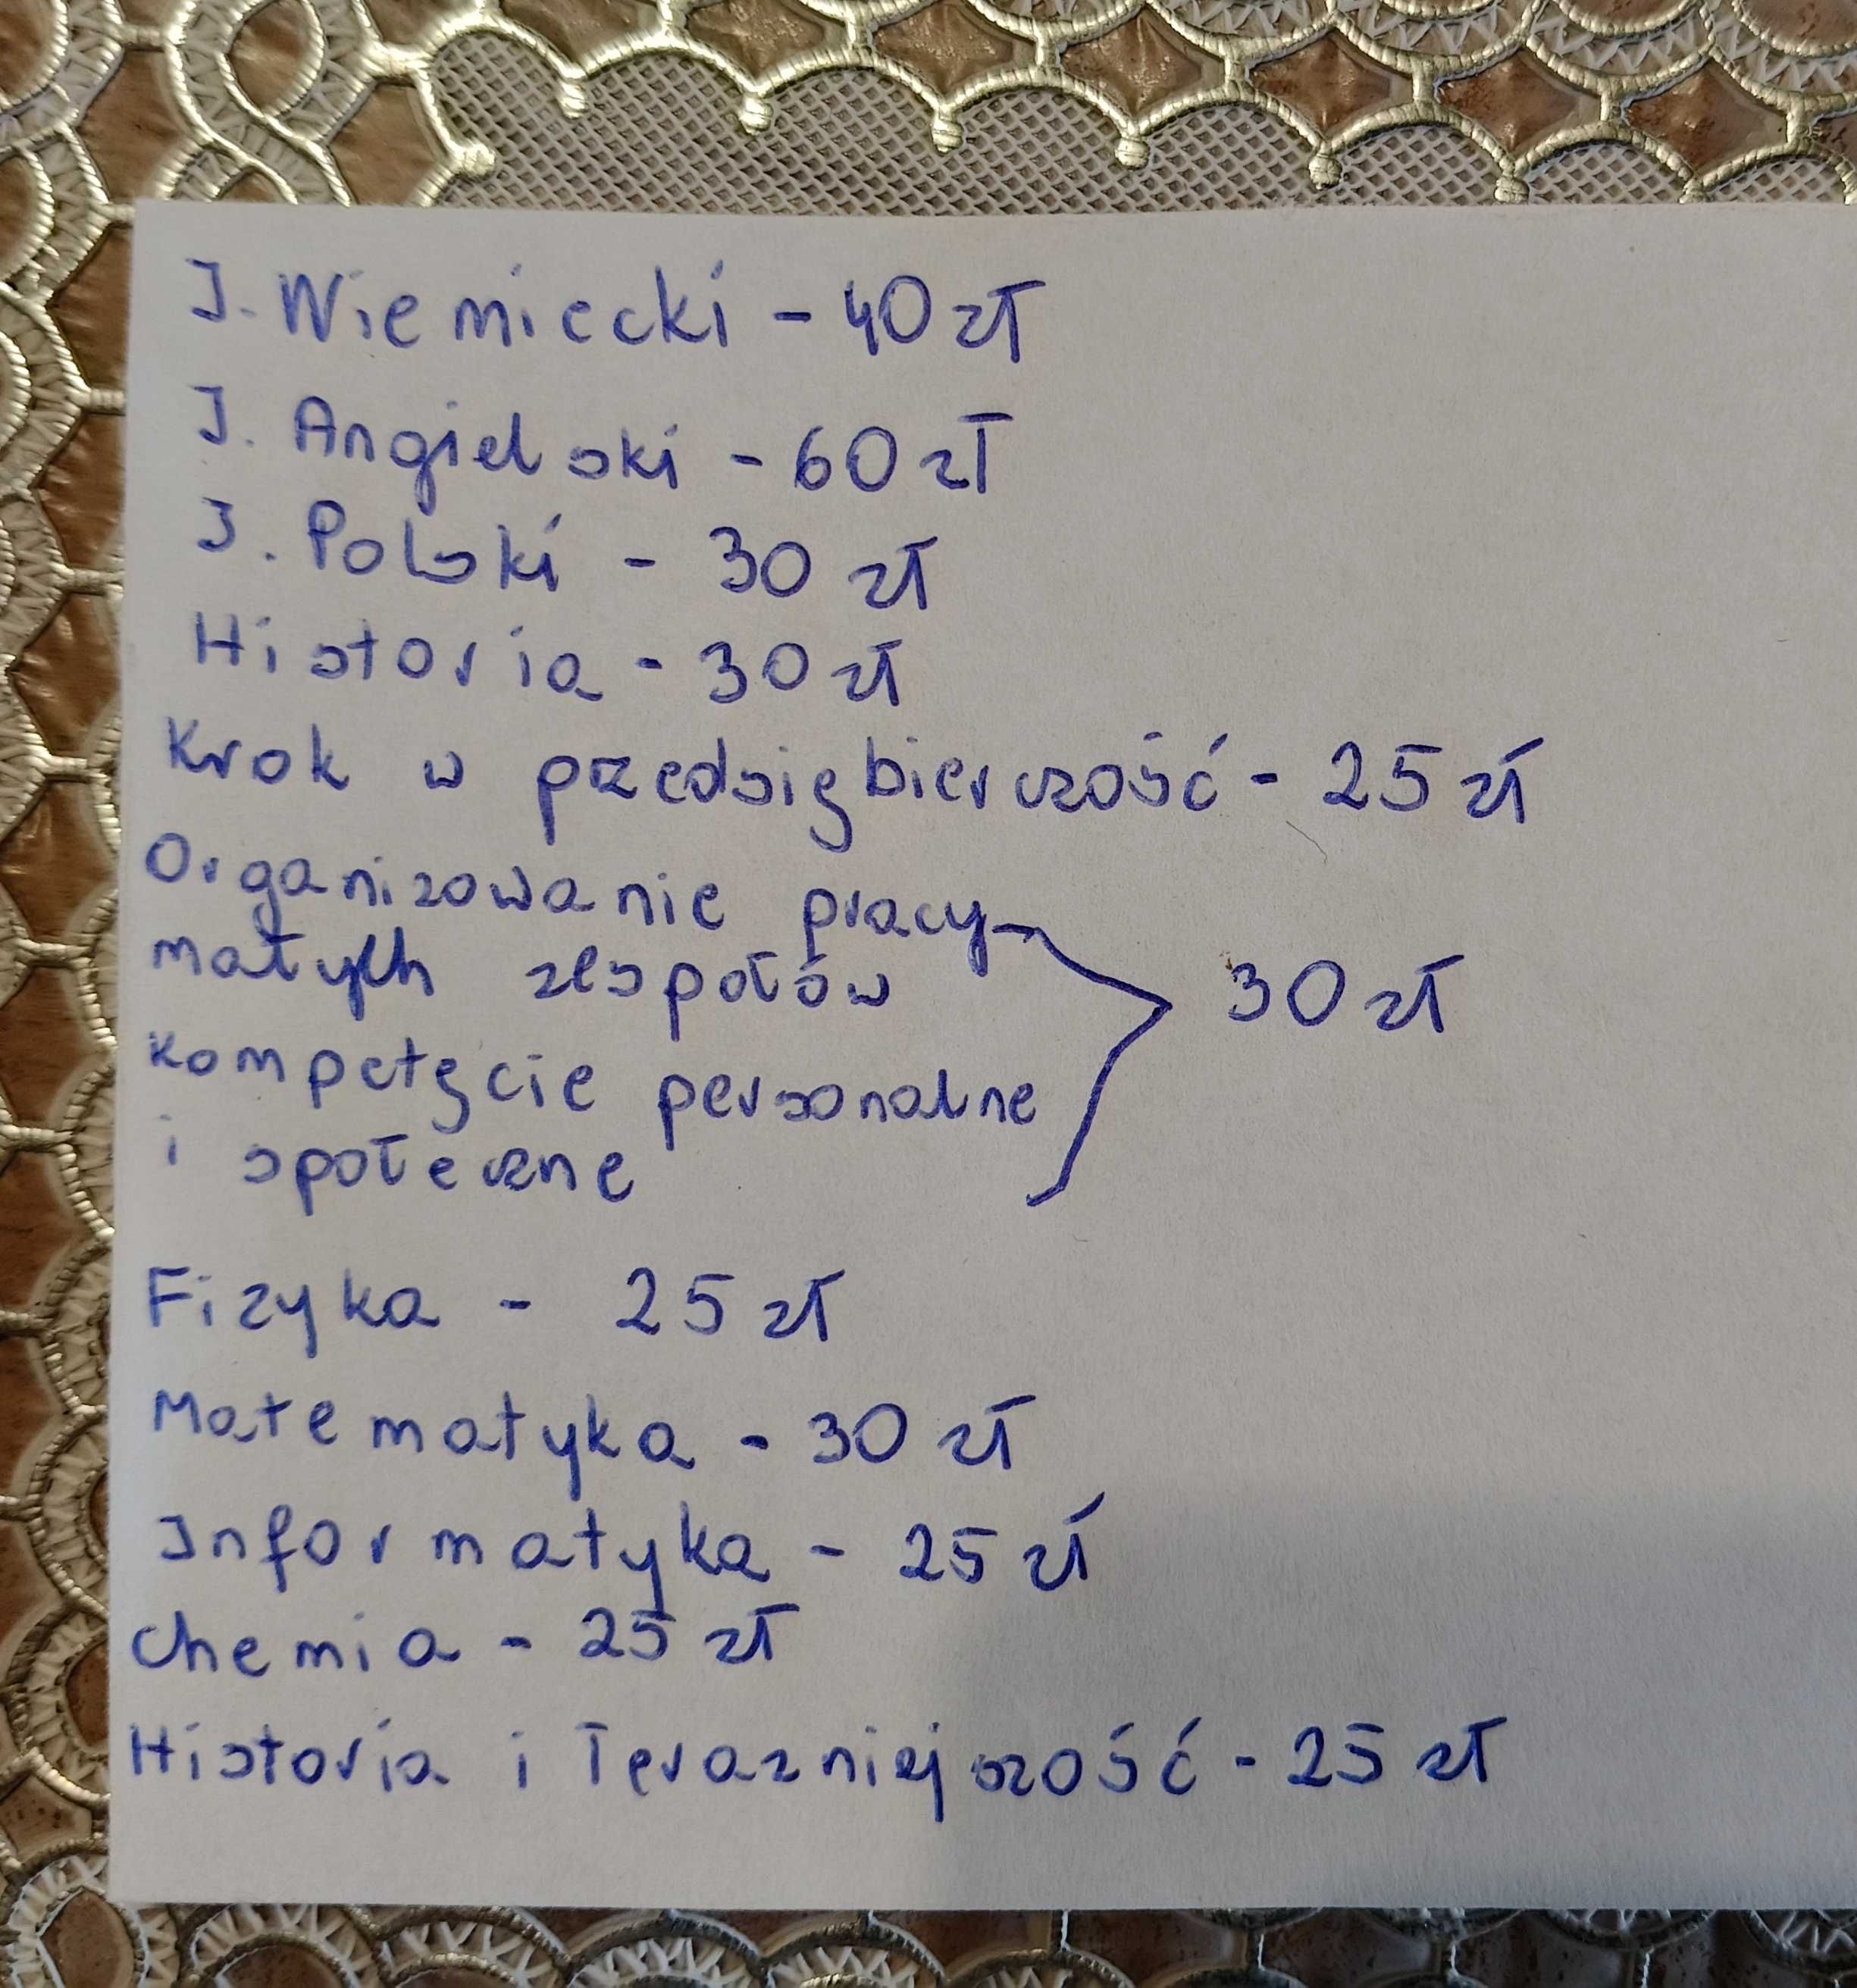 J. Niemiecki - 40 zł
J. Angielski - 60 zł
J. Polski - 30 zł
Historia - 30 zł
Krok w przedsiębierczość - 25 zł
Organizowanie pracy
małych zespołów
30 zł
Kompetęcie personalne
i społeczne
Fizyka - 25 zł
Matematyka - 30 zł
Informatyka - 25 zł
Chemia - 25 zł
Historia i Terazniejszość - 25 zł